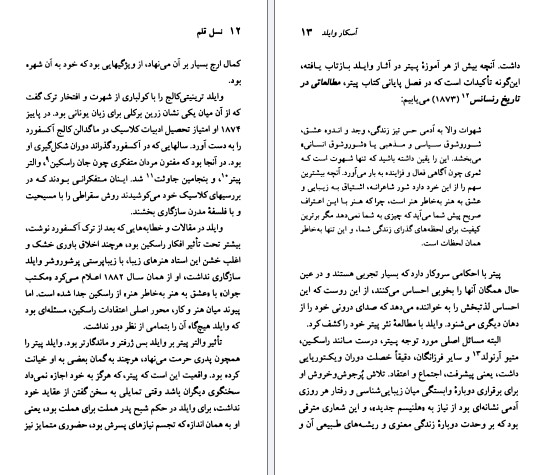 ۱۲ نسل قلم
کمال ارج بسیار بر آن می‌نهاد، از ویژگیهایی بود که خود به آن شهره
بود.
وایلد ترینیتی‌کالج را با کولباری از شهرت و افتخار ترک گفت
که از آن میان یکی نشان زرین برکلی برای زبان یونانی بود. در پاییز
۱۸۷۴ او امتیاز تحصیل ادبیات کلاسیک در ماگدالن کالج آکسفورد
را به دست آورد. سالهایی که در آکسفورد گذراند دوران شکل‌گیری او
بود. در آنجا بود که مفتون مردان متفکری چون جان راسکین۹، والتر
پیتر۱۰، و بنجامین جاوئت۱۱ شد. اینان متفکرانی بودند که در
بررسیهای کلاسیک خود می‌کوشیدند روش سقراطی را با مسیحیت
و با فلسفهٔ مدرن سازگاری بخشند.
وایلد در مقالات و خطابه‌هایی که بعد از ترک آکسفورد نوشت،
بیشتر تحت تأثیر افکار راسکین بود، هرچند اخلاق باوری خشک و
اغلب خشن این استاد هنرهای زیبا، با زیباپرستی پرشوروشر وایلد
سازگاری نداشت، او از همان سال ۱۸۸۲ اعلام می‌کرد «مکتب
جوان» با «عشق به هنر به‌خاطر هنر» از راسکین جدا شده است. اما
پیوند میان هنر و کار، محور اصلی اعتقادات راسکین، مسئله‌ای بود
که وایلد هیچ‌گاه آن را بتمامی از نظر دور نداشت.
تأثیر والتر پیتر بر وایلد بس ژرفتر و ماندگارتر بود. وایلد پیتر را
همچون پدری حرمت می‌نهاد، هرچند به گمان بعضی به او خیانت
کرده بود. واقعیت این است که پیتر، که هرگز به خود اجازه نمی‌داد
سخنگوی دیگران باشد وقتی تمایلی به سخن گفتن از عقاید خود
نداشت، برای وایلد در حکم شبح پدر هملت برای هملت بود، یعنی
او به همان اندازه که تجسم نیازهای پسرش بود، حضوری متمایز نیز
آسکار وایلد ۱۳
داشت. آنچه بیش از هر آموزهٔ پیتر در آثار وایلد بازتاب یافته،
این‌گونه تأکیدات است که در فصل پایانی کتاب پیتر، مطالعاتی در
تاریخ رنسانس۱۲ (۱۸۷۳) می‌یابیم:
شهوات والا به آدمی حس تیز زندگی، وجد و اندوه عشق،
شوروشوق سیاسی و مذهبی یا «شوروشوق انسانی»
می‌بخشد. این را یقین داشته باشید که تنها شهوت است که
ثمری چون آگاهی فعال و فزاینده به بار می‌آورد. آنچه بیشترین
سهم را از این خرد دارد شور شاعرانه، اشتیاق به زیبایی و
عشق به هنر به‌خاطر هنر است، چراکه هنر با این اعتراف
صریح پیش شما می‌آید که چیزی به شما نمی‌دهد مگر برترین
کیفیت برای لحظه‌های گذرای زندگی شما، و این تنها به‌خاطر
همان لحظات است.
پیتر با احکامی سروکار دارد که بسیار تجربی هستند و در عین
حال همگان آنها را بخوبی احساس می‌کنند، از این روست که این
احساس لذتبخش را به خواننده می‌دهد که صدای درونی خود را از
دهان دیگری می‌شنود. وایلد با مطالعهٔ نثر پیتر خود را کشف کرد.
البته مسائل اصلی مورد توجه پیتر، درست مانند راسکین،
متیو آرنولد۱۳ و سایر فرزانگان، دقیقاً خصلت دوران ویکتوریایی
داشت، یعنی پیشرفت، اجتماع و اعتقاد. تلاش پُرجوش‌وخروش او
برای برقراری دوبارهٔ وابستگی میان زیبایی‌شناسی و رفتار هر روزی
آدمی نشانه‌ای بود از نیاز به «هلنیسم جدید»، و این شعاری مترقی
بود که بر وحدت دوبارهٔ زندگی معنوی و ریشه‌های طبیعی آن و